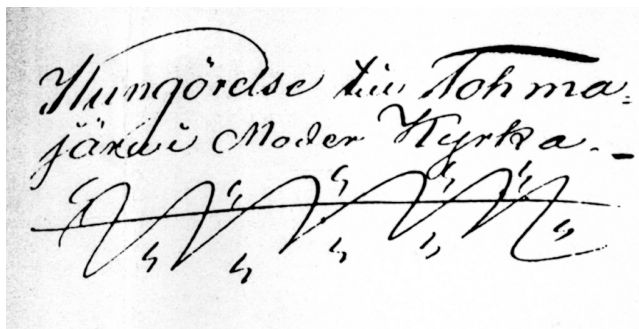 Kungörelse till Tohma=
järwi Moder Kyrka.-